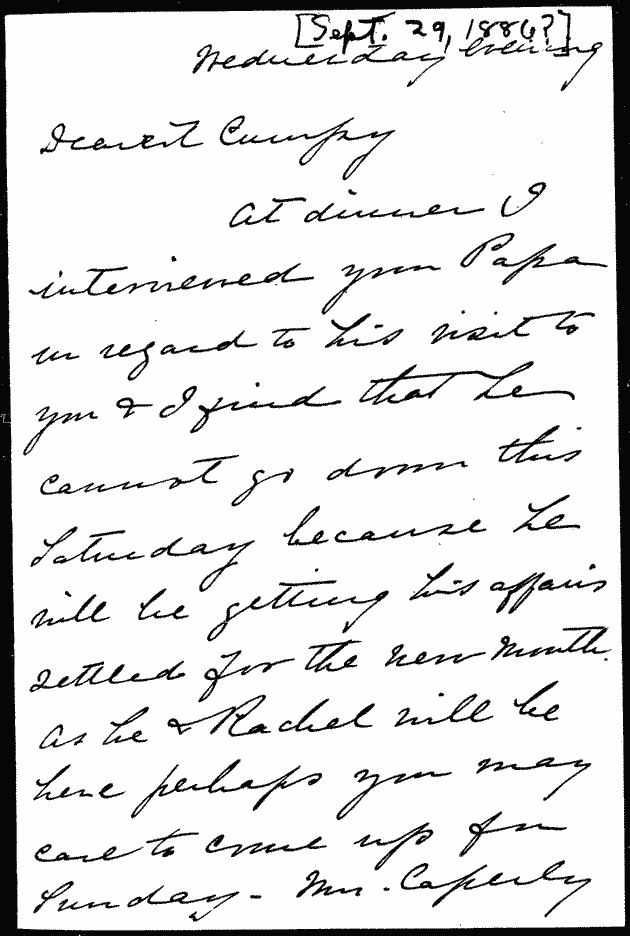 [Sept. 29, 1886?]
Wednesday evening
Dearest
At dinner I
interviewed your Papa
in regard to his visit to
you & I find that he
cannot go down this
Saturday because he
will be getting his affairs
settled for the new month.
As he & Rachel will be
here perhaps you may
care to come up for
Sunday -